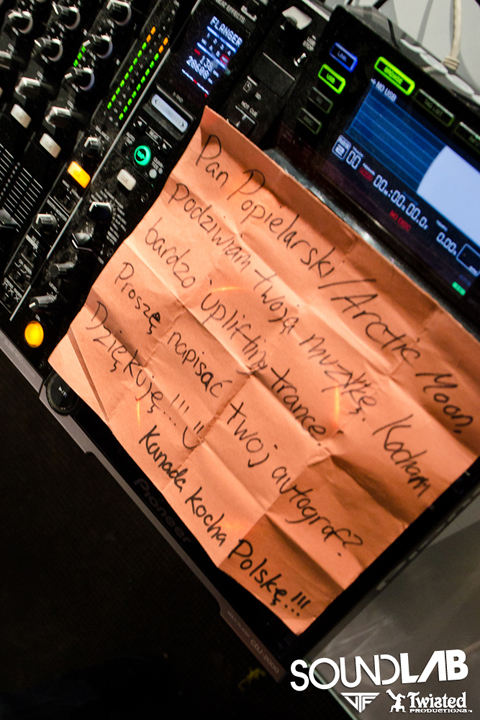 FLANGER
USB
NO USB
00:00.00.0
0.00
Pan Popielarski/Arctic Moon,
podziwiam twoją muzykę. Kocham
bardzo uplifting trance.
Proszę napisać twoj autograf?
Dziękuję...!!! :)
Kanada kocha Polskę!!!
Pioneer
SOUNDLAB
Twisted
PRODUCTIONS